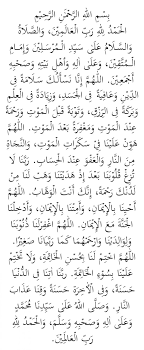 بِسْمِ اللَّهِ الرَّحْمَنِ الرَّحِيْمِ
الْحَمْدُ لِلَّهِ رَبِّ الْعَالَمِيْنَ، وَالصَّلَاةُ
وَالسَّلَامُ عَلَى سَيِّدِ الْمُرْسَلِيْنَ وَإِمَامِ
الْمُتَّقِيْنَ، وَعَلَى آلِهِ وَأَهْلِ بَيْتِهِ وَصَحْبِهِ
أَجْمَعِيْنَ. اللَّهُمَّ إِنَّا نَسْأَلُكَ سَلَامَةً فِي
الدِّيْنِ وَعَافِيَةً فِي الْجَسَدِ، وَزِيَادَةً فِي الْعِلْمِ
وَبَرَكَةً فِي الرِّزْقِ، وَتَوْبَةً قَبْلَ الْمَوْتِ، وَرَحْمَةً
عِنْدَ الْمَوْتِ وَمَغْفِرَةً بَعْدَ الْمَوْتِ. اللَّهُمَّ
هَوِّنْ عَلَيْنَا فِيْ سَكَرَاتِ الْمَوْتِ، وَالنَّجَاةَ
مِنَ النَّارِ وَالْعَفْوَ عِنْدَ الْحِسَابِ. رَبَّنَا لَا
تُزِغْ قُلُوْبَنَا بَعْدَ إِذْ هَدَيْتَنَا وَهَبْ لَنَا مِنْ
لَدُنْكَ رَحْمَةً، إِنَّكَ أَنْتَ الْوَهَّابُ. اللَّهُمَّ
أَحْيِنَا بِالْإِيْمَانِ، وَأَمِتْنَا بِالْإِيْمَانِ، وَأَدْخِلْنَا
الْجَنَّةَ مَعَ الْإِيْمَانِ. اللَّهُمَّ اغْفِرْلَنَا ذُنُوْبَنَا
وَلِوَالِدَيْنَا وَارْحَمْهُمَا كَمَا رَبَّيَانَا صَغِيْرًا.
اللَّهُمَّ اخْتِمْ لَنَا بِحُسْنِ الْخَاتِمَةِ، وَلَا تَخْتِمْ
عَلَيْنَا بِسُوْءِ الْخَاتِمَةِ. رَبَّنَا آتِنَا فِي الدُّنْيَا
حَسَنَةً وَفِي الْآخِرَةِ حَسَنَةً وَقِنَا عَذَابَ
النَّارِ. وَصَلَّى اللَّهُ عَلَى سَيِّدِنَا مُحَمَّدٍ
وَعَلَى آلِهِ وَصَحْبِهِ وَسَلَّمَ، وَالْحَمْدُ لِلَّهِ
رَبِّ الْعَالَمِيْنَ.